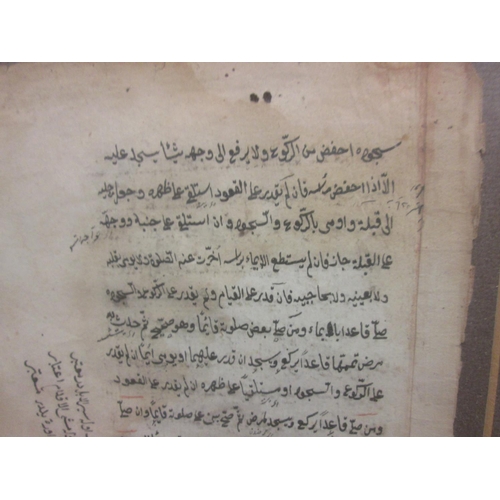 سجوده اخفض من الركوع ولا يرفع الى وجهه شيئا يسجد عليه
الا اذا اخفض راسه فان لم يقدر على القعود استلقى على ظهره وجعل رجليه
الى قبلة واومى بالركوع والسجود وان استلقى على جنبه ووجهه
على القبلة جاز فان لم يستطع الايماء براسه اخرت عنه الصلوة ولا يومى بقلبه
ولا بعينيه ولا بحاجبيه فان قدر على القيام ولم يقدر على الركوع والسجود
صلى قاعدا بايماء ومن صلى بعض صلوته قائما وهو صحيح ثم حدث به
مرض تممها قاعدا يركع ويسجد ان قدر عليهما او يومى ايماء ان لم يقدر
على الركوع والسجود او مستلقيا على ظهره ان لم يقدر على القعود
ومن صلى قاعدا يركع ويسجد لمرض ثم صح بنى على صلوته قائما وان صلى